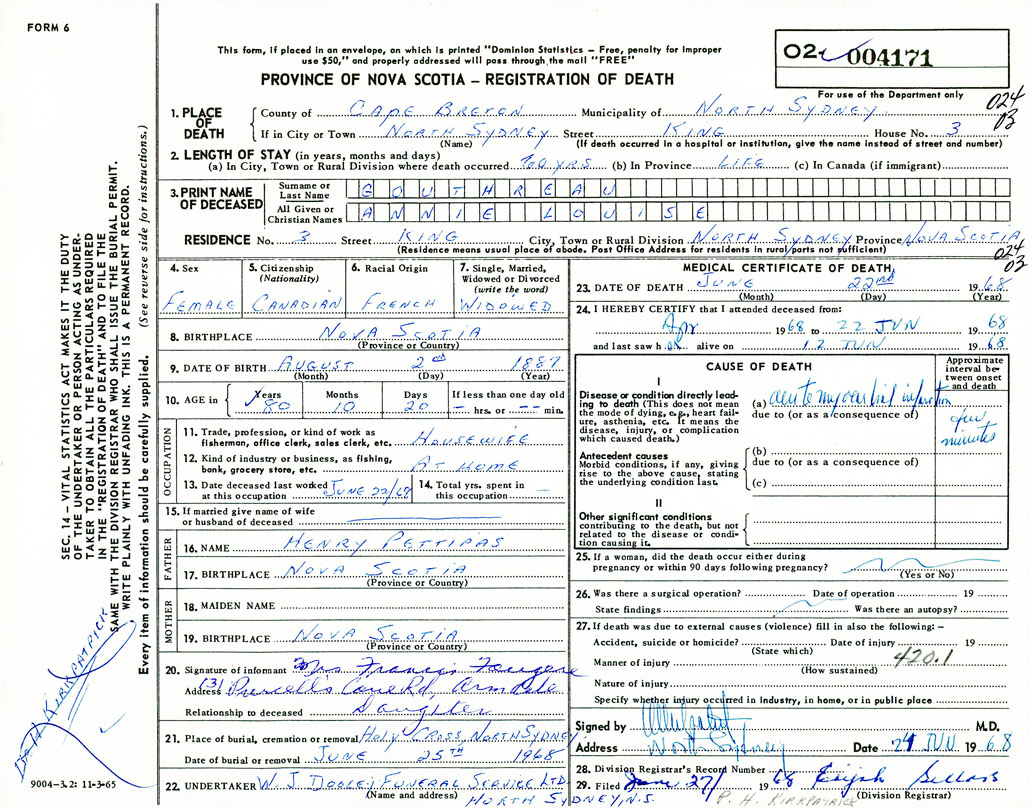 FORM 6
This form, if placed in an envelope, on which is printed "Dominion Statistics – Free, penalty for improper
use $50," and properly addressed will pass through the mail "FREE"
PROVINCE OF NOVA SCOTIA – REGISTRATION OF DEATH
02 004171
For use of the Department only
024
03
1. PLACE OF DEATH County of CAPE BRETON Municipality of NORTH SYDNEY
If in City or Town NORTH SYDNEY Street KING House No. 3
(Name) (If death occurred in a hospital or institution, give the name instead of street and number)
2. LENGTH OF STAY (in years, months and days)
(a) In City, Town or Rural Division where death occurred 60 YRS (b) In Province LIFE (c) In Canada (if immigrant)
3. PRINT NAME OF DECEASED
Surname or Last Name GOUTHREAU
All Given or Christian Names ANNIE LOUISE
RESIDENCE No. 3 Street KING City, Town or Rural Division NORTH SYDNEY Province NOVA SCOTIA
(Residence means usual place of abode. Post Office Address for residents in rural parts not sufficient)
024
03
4. Sex FEMALE
5. Citizenship (Nationality) CANADIAN
6. Racial Origin FRENCH
7. Single, Married, Widowed or Divorced (write the word) WIDOWED
8. BIRTHPLACE NOVA SCOTIA
(Province or Country)
9. DATE OF BIRTH AUGUST 2nd 1887
(Month) (Day) (Year)
10. AGE in Years 80 Months 10 Days 20 If less than one day old -- hrs. or -- min.
OCCUPATION
11. Trade, profession, or kind of work as fisherman, office clerk, sales clerk, etc. HOUSEWIFE
12. Kind of industry or business, as fishing, bank, grocery store, etc. AT HOME
13. Date deceased last worked at this occupation JUNE 22/68 14. Total yrs. spent in this occupation —
15. If married give name of wife or husband of deceased
FATHER
16. NAME HENRY PETTIPAS
17. BIRTHPLACE NOVA SCOTIA
(Province or Country)
MOTHER
18. MAIDEN NAME
19. BIRTHPLACE NOVA SCOTIA
(Province or Country)
20. Signature of informant Mrs. Francis Fougere
Address Purcell's Cove Rd, Armdale
Relationship to deceased Daughter
21. Place of burial, cremation or removal HOLY CROSS NORTH SYDNEY
Date of burial or removal JUNE 25TH 1968
22. UNDERTAKER W. J. DOOLEY FUNERAL SERVICE LTD.
(Name and address) NORTH SYDNEY, N.S.
MEDICAL CERTIFICATE OF DEATH
23. DATE OF DEATH JUNE 22nd 1968
(Month) (Day) (Year)
24. I HEREBY CERTIFY that I attended deceased from:
Apr 1968 to 22 JUN 1968
and last saw her alive on 12 JUN 1968
CAUSE OF DEATH
Approximate interval between onset and death
I
Disease or condition directly leading to death (This does not mean the mode of dying, e.g., heart failure, asthenia, etc. It means the disease, injury, or complication which caused death.)
(a) acute myocardial infarction
few minutes
due to (or as a consequence of)
Antecedent causes
Morbid conditions, if any, giving rise to the above cause, stating the underlying condition last.
(b)
due to (or as a consequence of)
(c)
II
Other significant conditions contributing to the death, but not related to the disease or condition causing it.
25. If a woman, did the death occur either during pregnancy or within 90 days following pregnancy?
(Yes or No)
26. Was there a surgical operation? Date of operation 19
State findings Was there an autopsy?
27. If death was due to external causes (violence) fill in also the following: –
Accident, suicide or homicide? Date of injury 19
(State which)
Manner of injury 420.1
(How sustained)
Nature of injury
Specify whether injury occurred in industry, in home, or in public place
Signed by M.D.
Address North Sydney Date 24 JUN 1968
28. Division Registrar's Record Number
29. Filed June 27/ 1968
P. H. KIRKPATRICK (Division Registrar)
SEC. 14 – VITAL STATISTICS ACT MAKES IT THE DUTY
OF THE UNDERTAKER OR PERSON ACTING AS UNDER-
TAKER TO OBTAIN ALL THE PARTICULARS REQUIRED
IN THE "REGISTRATION OF DEATH" AND TO FILE THE
SAME WITH THE DIVISION REGISTRAR WHO SHALL ISSUE THE BURIAL PERMIT.
WRITE PLAINLY WITH UNFADING INK. THIS IS A PERMANENT RECORD.
Every item of information should be carefully supplied. (See reverse side for instructions.)
KIRKPATRICK
9004–3.2: 11-3-65